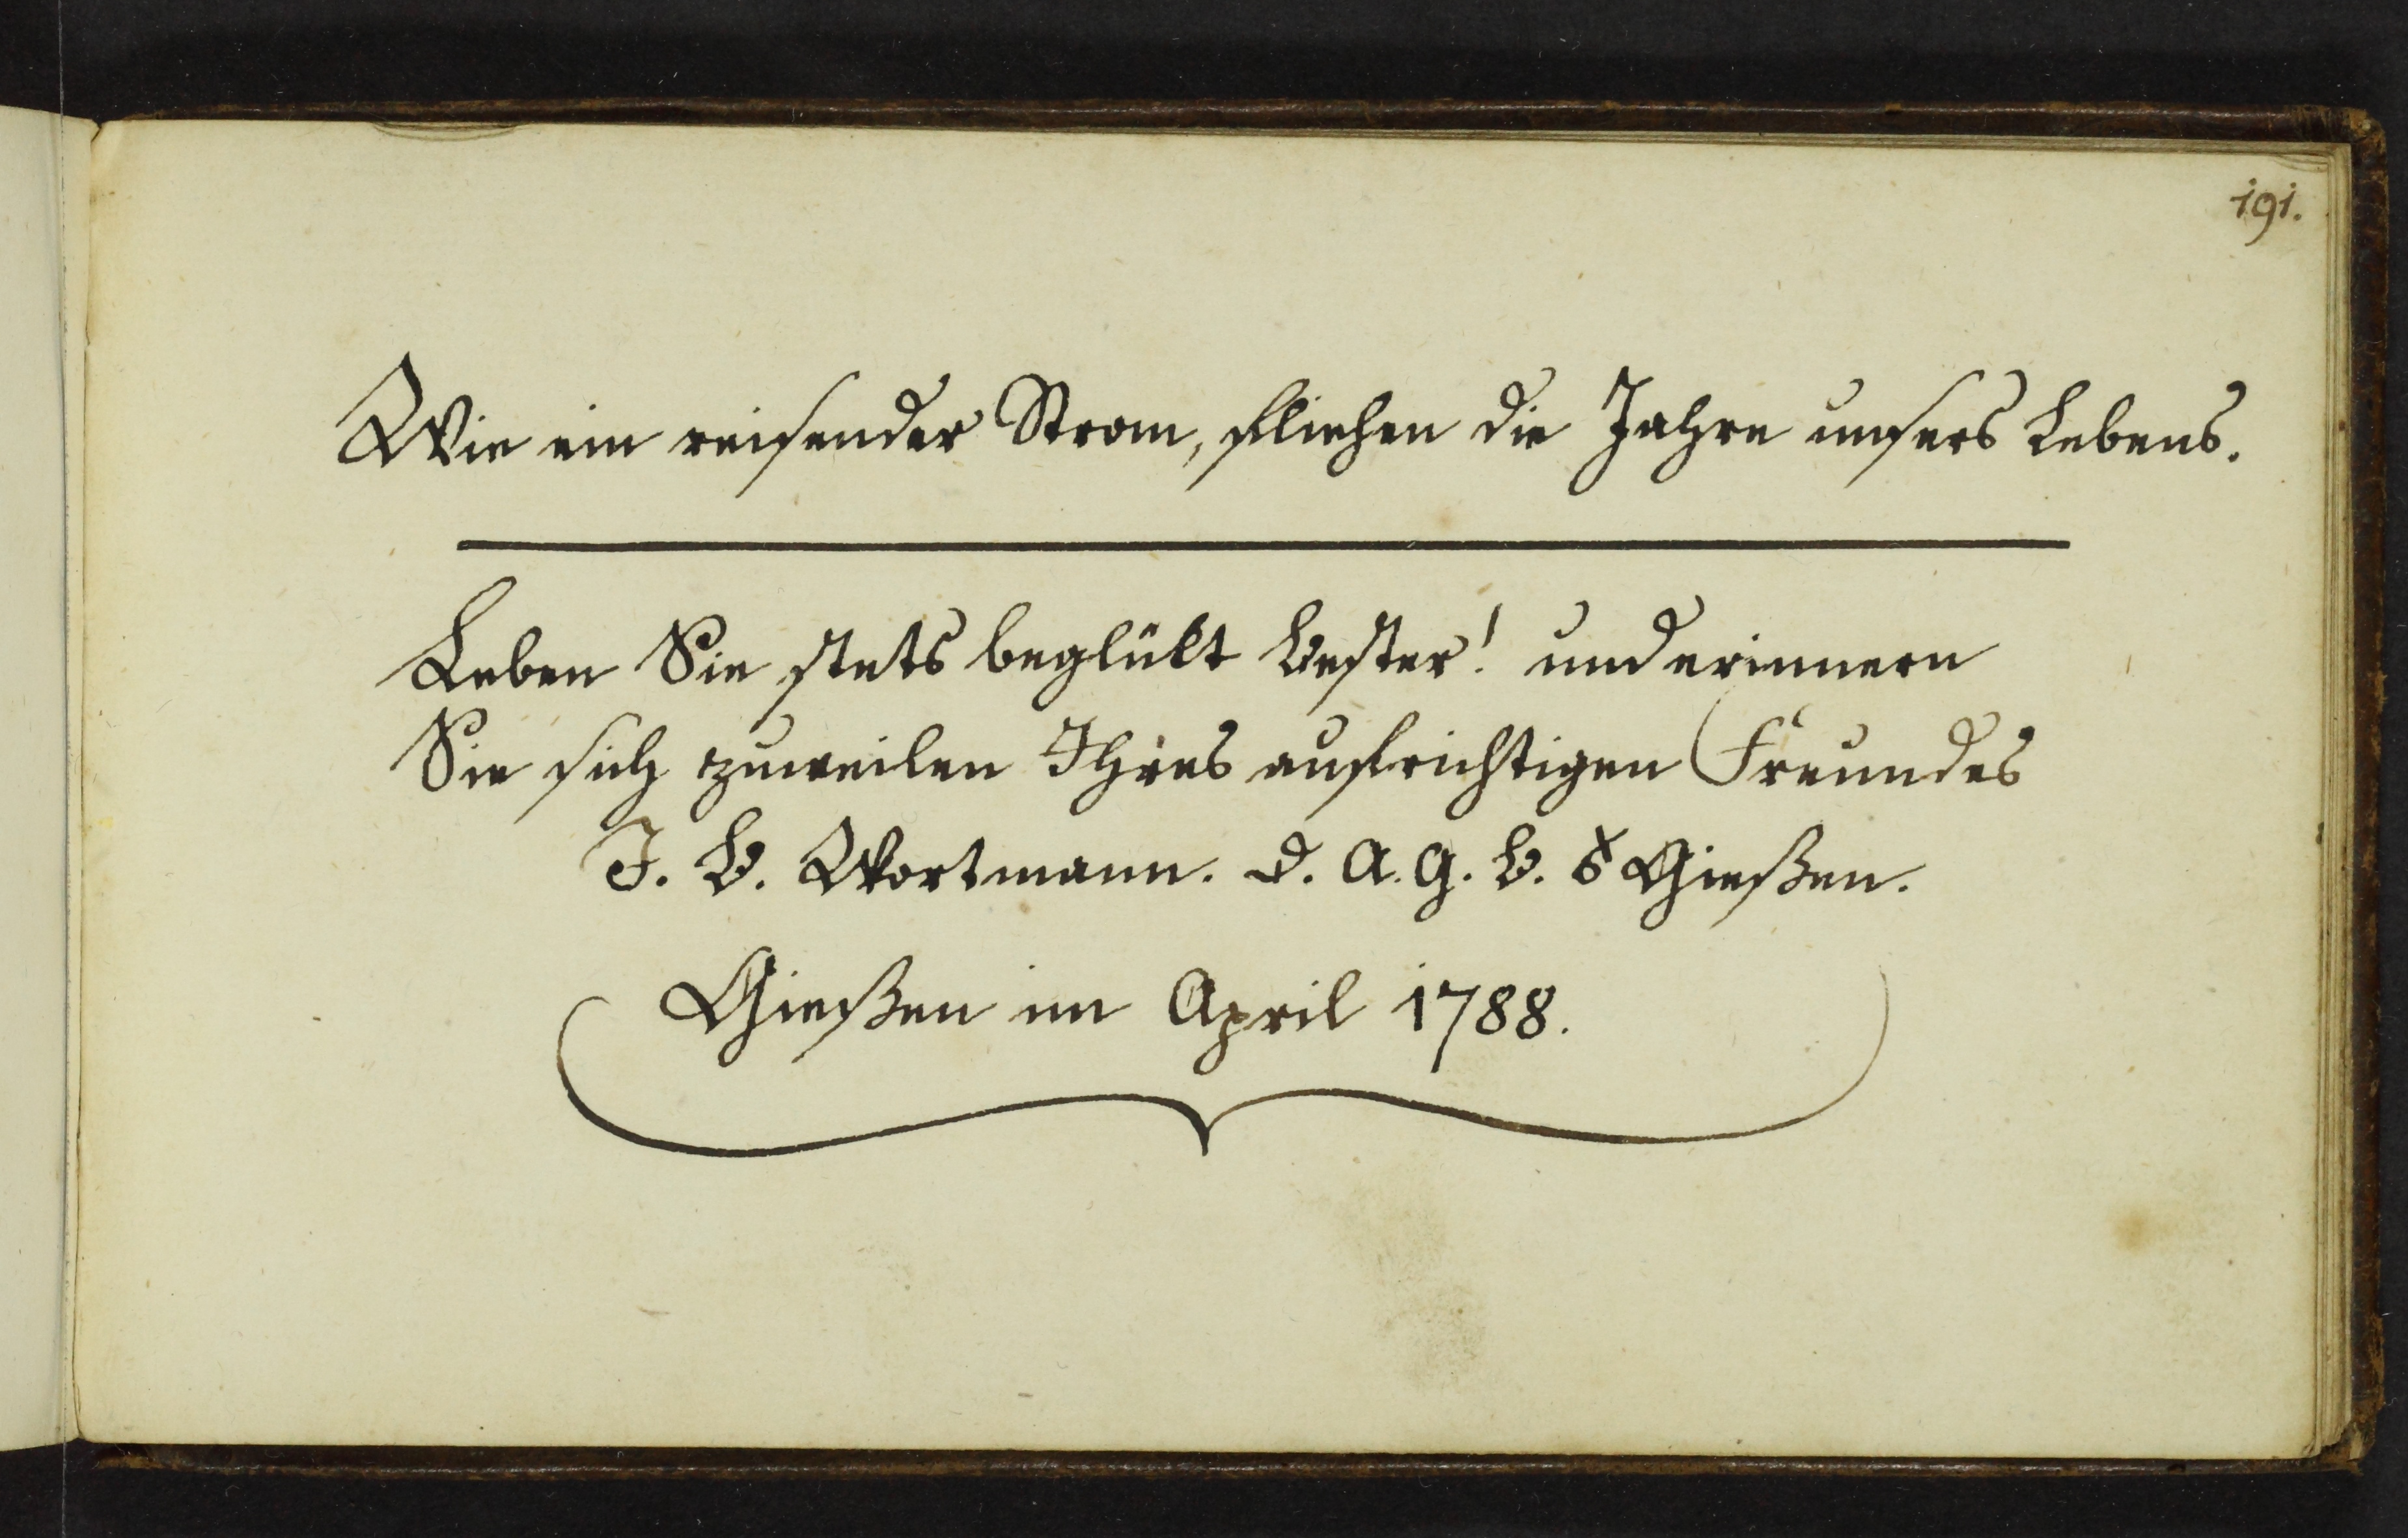 191.
Wie ein reisender Strom, fliehen die Jahre unsers Lebens.
Leben Sie stets beglükt Bester! und erinnern
Sie sich zuweilen Ihres aufrichtigen Freundes
J. B. Wortmann. d. A. G. B. Gießen.
Gießen im April 1788.